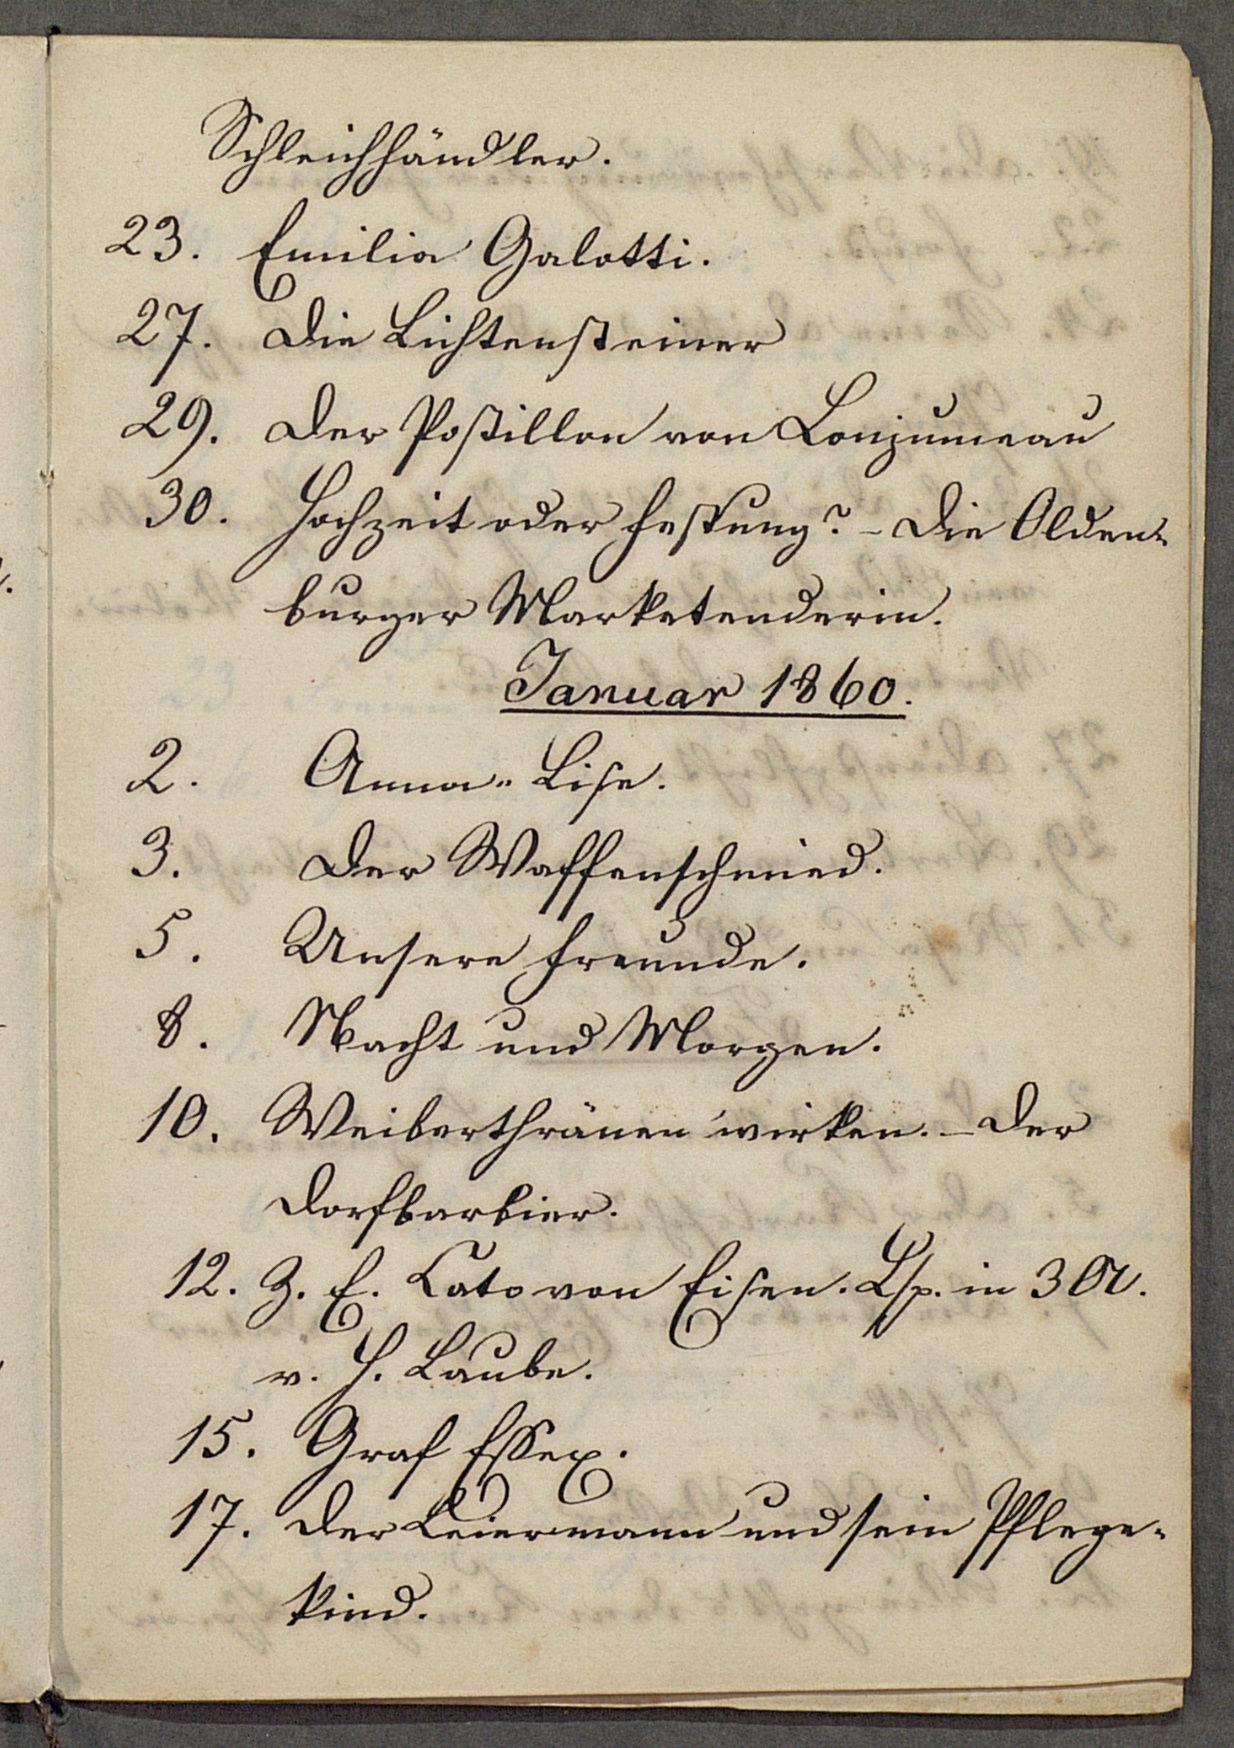 Schleichhändler.
23. Emilia Galotti.
27. Die Lichtensteiner
29. Der Postillon von Lonjumeau
30. Hochzeit oder Festung? – Die Olden-
burger Marketenderin.
Januar 1860.
2. Anna-Lise.
3. Der Waffenschmied.
5. Unsere Freunde.
8. Nacht und Morgen.
10. Weiberthränen wirken. – Der
Dorfbarbier.
12. Z. E. Cato von Eisen. Lsp. in 3 A.
v. H. Laube.
15. Graf Essex.
17. Der Leiermann und sein Pflege-
kind.